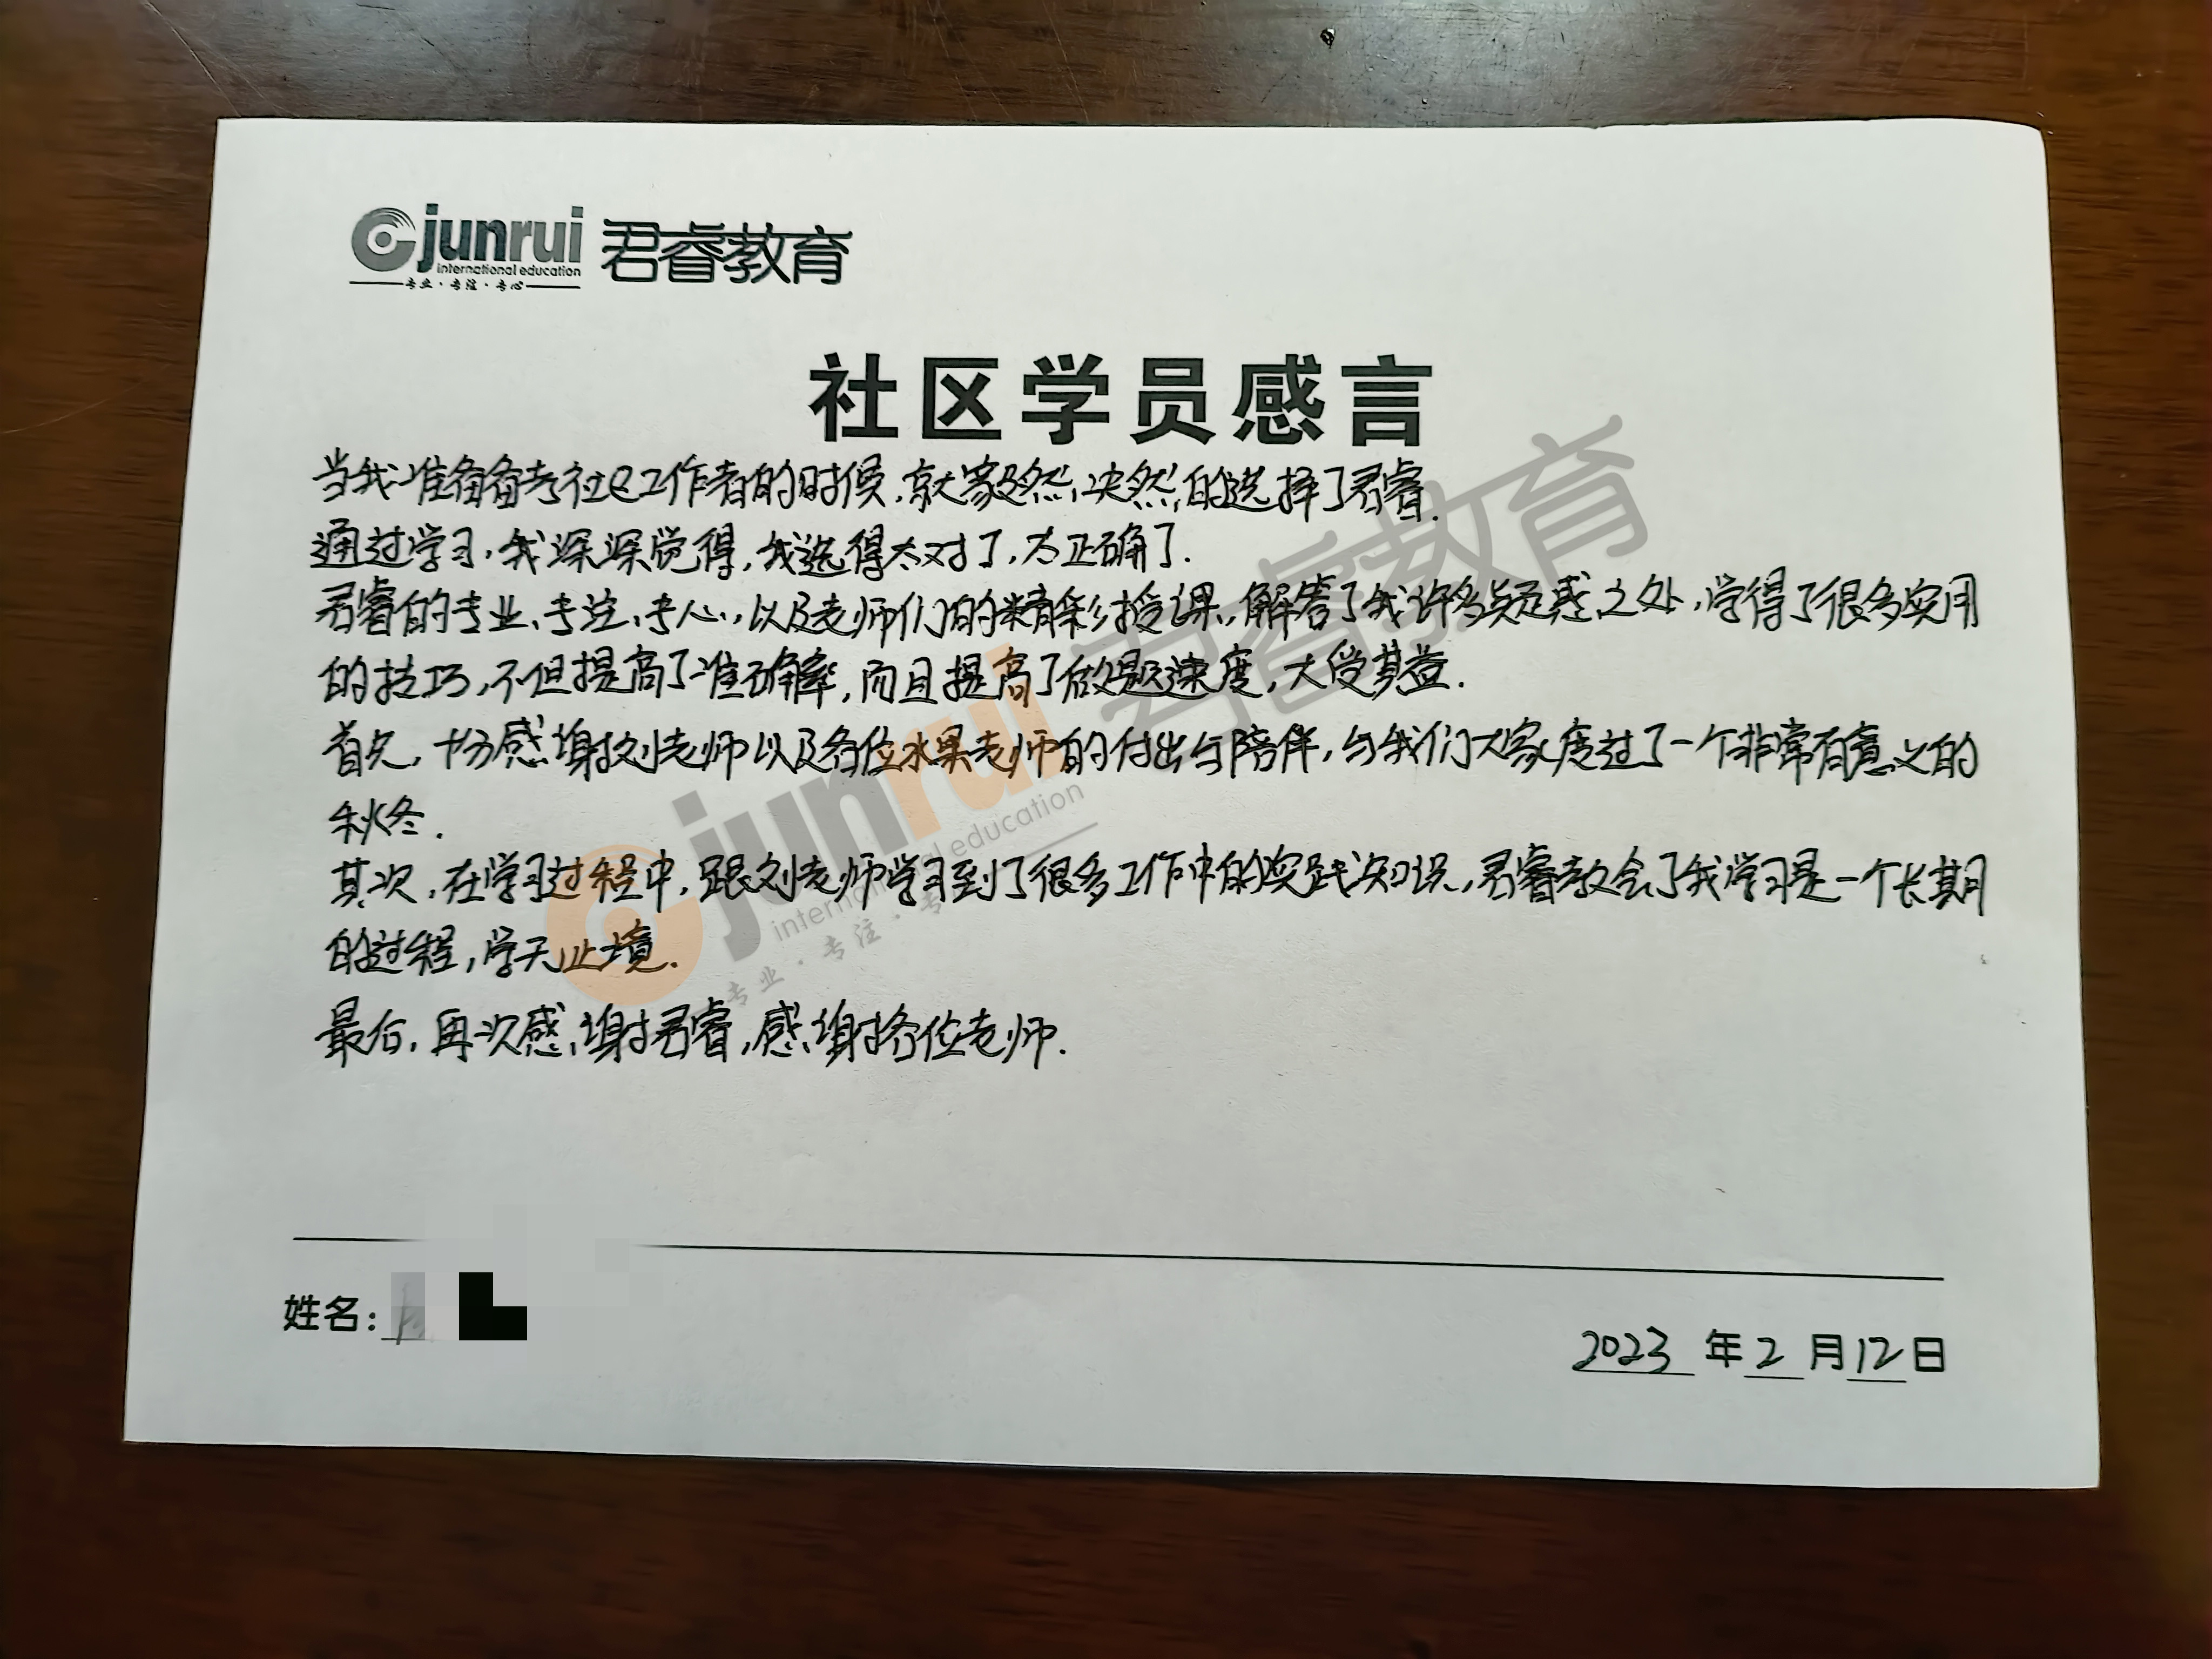 junrui 君睿教育
international education
专业·专注·专心
社区学员感言
当我准备备考社区工作者的时候,就毅然决然的选择了君睿.
通过学习,我深深觉得,我选得太对了,太正确了.
君睿的专业、专注、专心,以及老师们的精彩授课,解答了我许多疑惑之处,学得了很多实用
的技巧,不但提高了准确率,而且提高了做题速度,大受其益.
首先,十分感谢刘老师以及各位水果老师的付出与陪伴,与我们大家度过了一个非常有意义的
秋冬.
其次,在学习过程中,跟刘老师学习到了很多工作中的实践知识,君睿教会了我学习是一个长期
的过程,学无止境.
最后,再次感谢君睿,感谢各位老师.
姓名:
2023年2月12日
junrui 君睿教育
international education
专业·专注·专